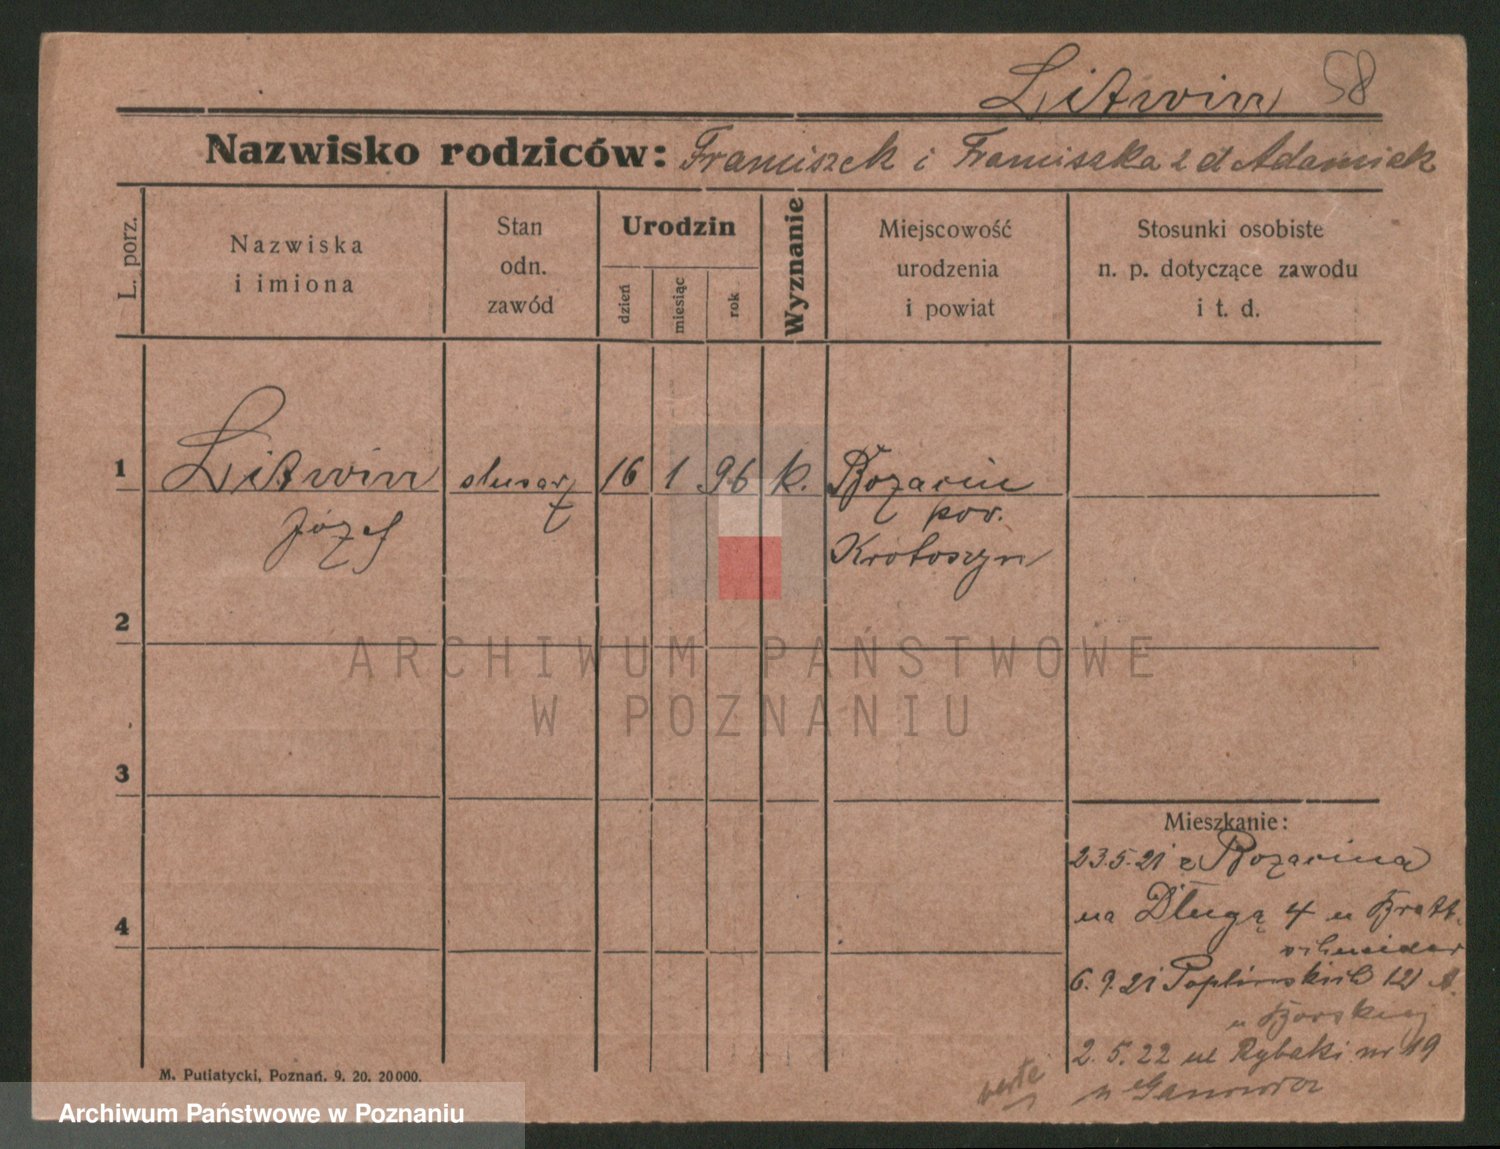 Litwin 58
Nazwisko rodziców: Franciszek i Franciszka z d Adamiak
L. porz.
Nazwiska
i imiona
Stan
odn.
zawód
Urodzin
dzień
miesiąc
rok
Wyznanie
Miejscowość
urodzenia
i powiat
Stosunki osobiste
n. p. dotyczące zawodu
i t. d.
1 Litwin ślusarz 16 1 96 k. Bożacin
Józef pow.
Krotoszyn
2
ARCHIWUM PAŃSTWOWE
W POZNANIU
3
Mieszkanie:
23.5.21 z Bożacina
4 na Długą 4 u
6.9.21 Poplińskich 12
u
2.5.22 ul Rybaki nr 19
u
verte
M. Putiatycki, Poznań. 9. 20. 20000.
Archiwum Państwowe w Poznaniu